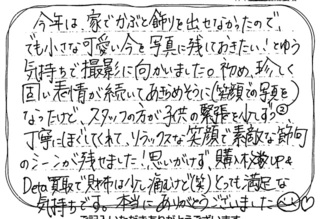 今年は、家でかぶと飾りを出せなかったので、
でも小さな可愛い今を写真に残しておきたい!とゆう
気持ちで撮影に向かいました。初め、珍しく
固い表情が続いていてあきらめそうに(笑顔での写真を)
なったけど、スタッフの方が子供の緊張を少しずつ
丁寧にほぐしてくれて、リラックスな笑顔で素敵な節句
のシーンが残せました!思いがけず購入枚数UP&
Data買取で財布は少し痛むけど(笑)とっても満足な
気持ちです。本当にありがとうございました
ご記入いただきありがとうございます